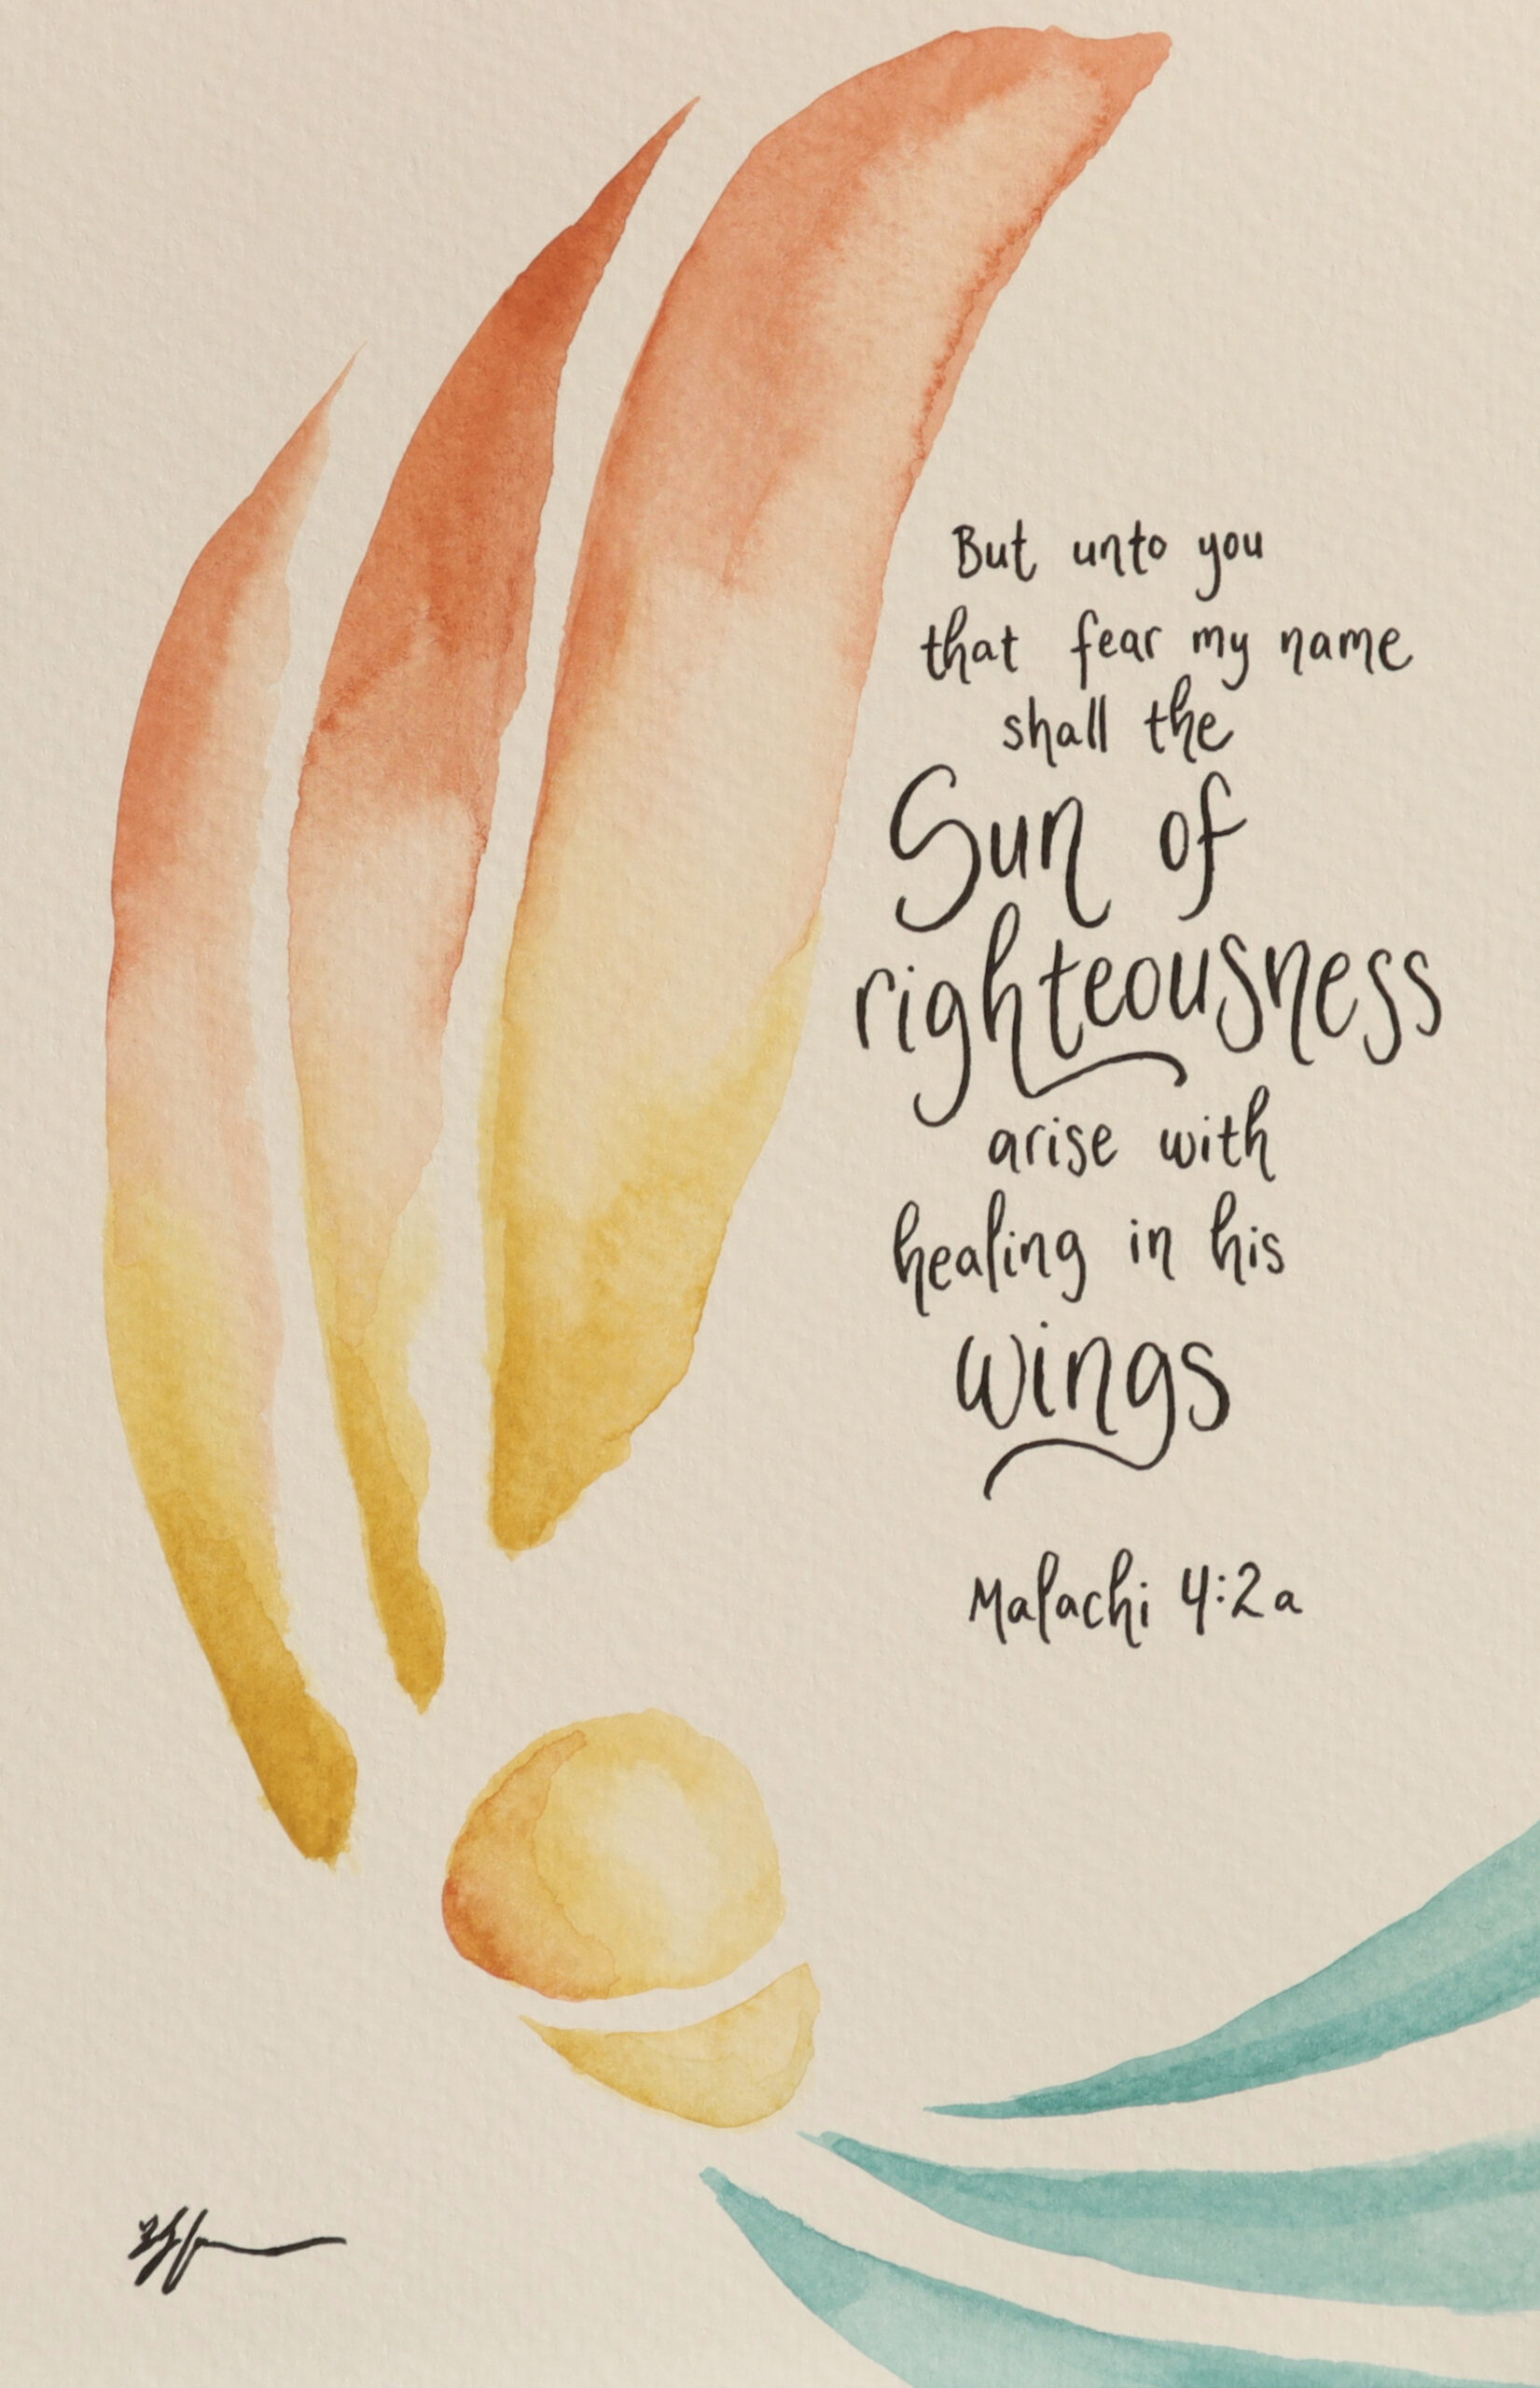 But unto you
that fear my name
shall the
Sun of
righteousness
arise with
healing in his
wings
Malachi 4:2a